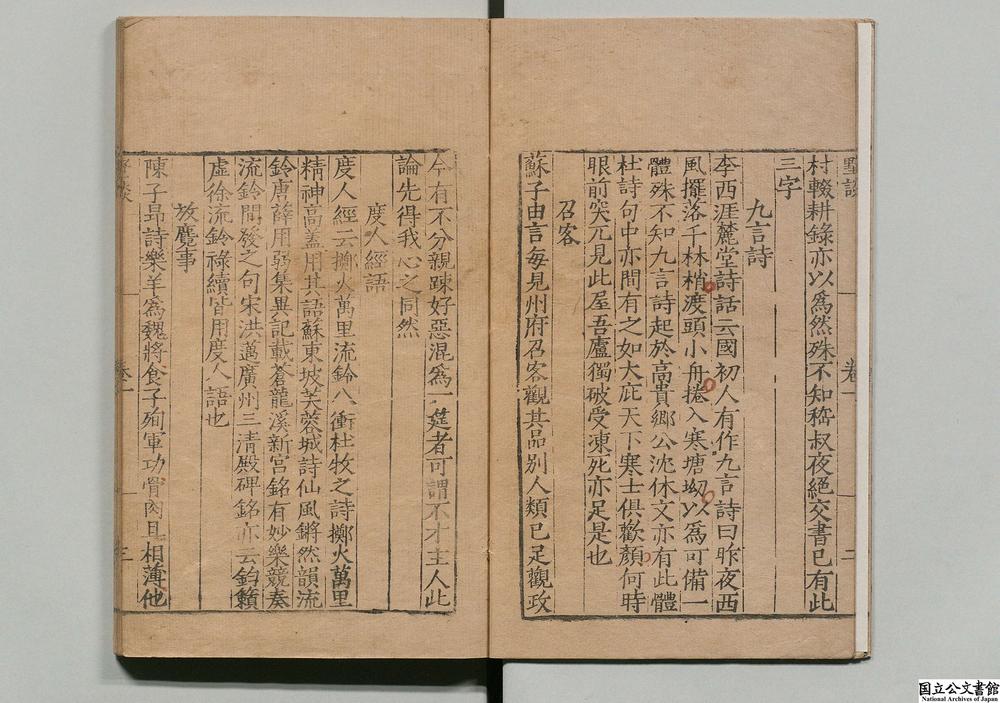 村輟耕錄亦以爲然殊不知嵇叔夜絕交書已有此
三字
九言詩
李西涯麓堂詩話云國初人有作九言詩曰昨夜西
風擺落千林梢渡頭小舟捲入寒塘坳以爲可備一
體殊不知九言詩起於高貴鄉公沈休文亦有此體
杜詩句中亦間有之如大庇天下寒士俱歡顏何時
眼前突兀見此屋吾廬獨破受凍死亦足是也
召客
蘇子由言每見州府召客觀其品別人類已足觀政
今有不分親踈好惡混爲一筵者可謂不才主人此
論先得我心之同然
度人經語
度人經云擲火萬里流鈴八衝杜牧之詩擲火萬里
精神高蓋用其語蘇東坡芙蓉城詩仙風鏘然韻流
鈴唐薛用弱集異記載蒼龍溪新宮銘有妙樂競奏
流鈴間發之句宋洪邁廣州三清殿碑銘亦云鈞籟
虛徐流鈴祿續皆用度人語也
放麑事
陳子昂詩樂羊爲魏將食子殉軍功骨肉且相薄他
卷一
二
卷一
三
国立公文書館
National Archives of Japan